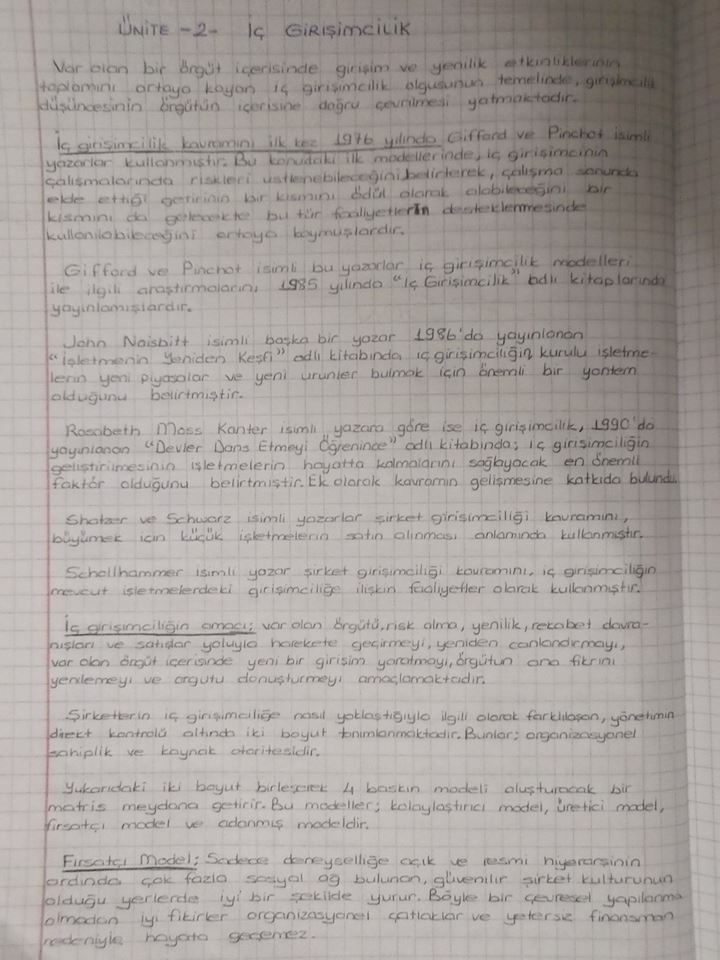 ÜNİTE -2- İÇ GİRİŞİMCİLİK
Var olan bir örgüt içerisinde girişim ve yenilik etkinliklerinin
toplamını ortaya koyan iç girişimcilik olgusunun temelinde, girişimcilik
düşüncesinin örgütün içerisine doğru çevrilmesi yatmaktadır.
İç girişimcilik kavramını ilk kez 1976 yılında Gifford ve Pinchot isimli
yazarlar kullanmıştır. Bu konudaki ilk modellerinde, iç girişimcinin
çalışmalarında riskleri üstlenebileceğini belirterek, çalışma sonunda
elde ettiği getirinin bir kısmını ödül olarak alabileceğini bir
kısmını da gelecekte bu tür faaliyetlerin desteklenmesinde
kullanılabileceğini ortaya koymuşlardır.
Gifford ve Pinchot isimli bu yazarlar iç girişimcilik modelleri
ile ilgili araştırmalarını 1985 yılında "İç Girişimcilik" adlı kitaplarında
yayınlamışlardır.
John Naisbitt isimli başka bir yazar 1986'da yayınlanan
"İşletmenin Yeniden Keşfi" adlı kitabında iç girişimciliğin kurulu işletme-
lerin yeni piyasalar ve yeni ürünler bulmak için önemli bir yöntem
olduğunu belirtmiştir.
Rosabeth Moss Kanter isimli yazara göre ise iç girişimcilik, 1990'da
yayınlanan "Devler Dans Etmeyi Öğrenince" adlı kitabında; iç girişimciliğin
geliştirilmesinin işletmelerin hayatta kalmalarını sağlayacak en önemli
faktör olduğunu belirtmiştir. Ek olarak kavramın gelişmesine katkıda bulundu.
Shatzer ve Schwarz isimli yazarlar şirket girişimciliği kavramını,
büyümek için küçük işletmelerin satın alınması anlamında kullanmıştır.
Schollhammer isimli yazar şirket girişimciliği kavramını, iç girişimciliğin
mevcut işletmelerdeki girişimciliğe ilişkin faaliyetler olarak kullanmıştır.
İç girişimciliğin amacı; var olan örgütü, risk alma, yenilik, rekabet davra-
nışları ve satışlar yoluyla harekete geçirmeyi, yeniden canlandırmayı,
var olan örgüt içerisinde yeni bir girişim yaratmayı, örgütün ana fikrini
yenilemeyi ve örgütü dönüştürmeyi amaçlamaktadır.
Şirketlerin iç girişimciliğe nasıl yaklaştığıyla ilgili olarak farklılaşan, yönetimin
direkt kontrolü altında iki boyut tanımlanmaktadır. Bunlar; organizasyonel
sahiplik ve kaynak otoritesidir.
Yukarıdaki iki boyut birleşerek 4 baskın modeli oluşturacak bir
matris meydana getirir. Bu modeller; kolaylaştırıcı model, üretici model,
fırsatçı model ve adanmış modeldir.
Fırsatçı Model; Sadece deneyselliğe açık ve resmi hiyerarşinin
ardında çok fazla sosyal ağ bulunan, güvenilir şirket kültürünün
olduğu yerlerde iyi bir şekilde yürür. Böyle bir çevresel yapılanma
olmadan iyi fikirler organizasyonel çatlaklar ve yetersiz finansman
nedeniyle hayata geçemez.